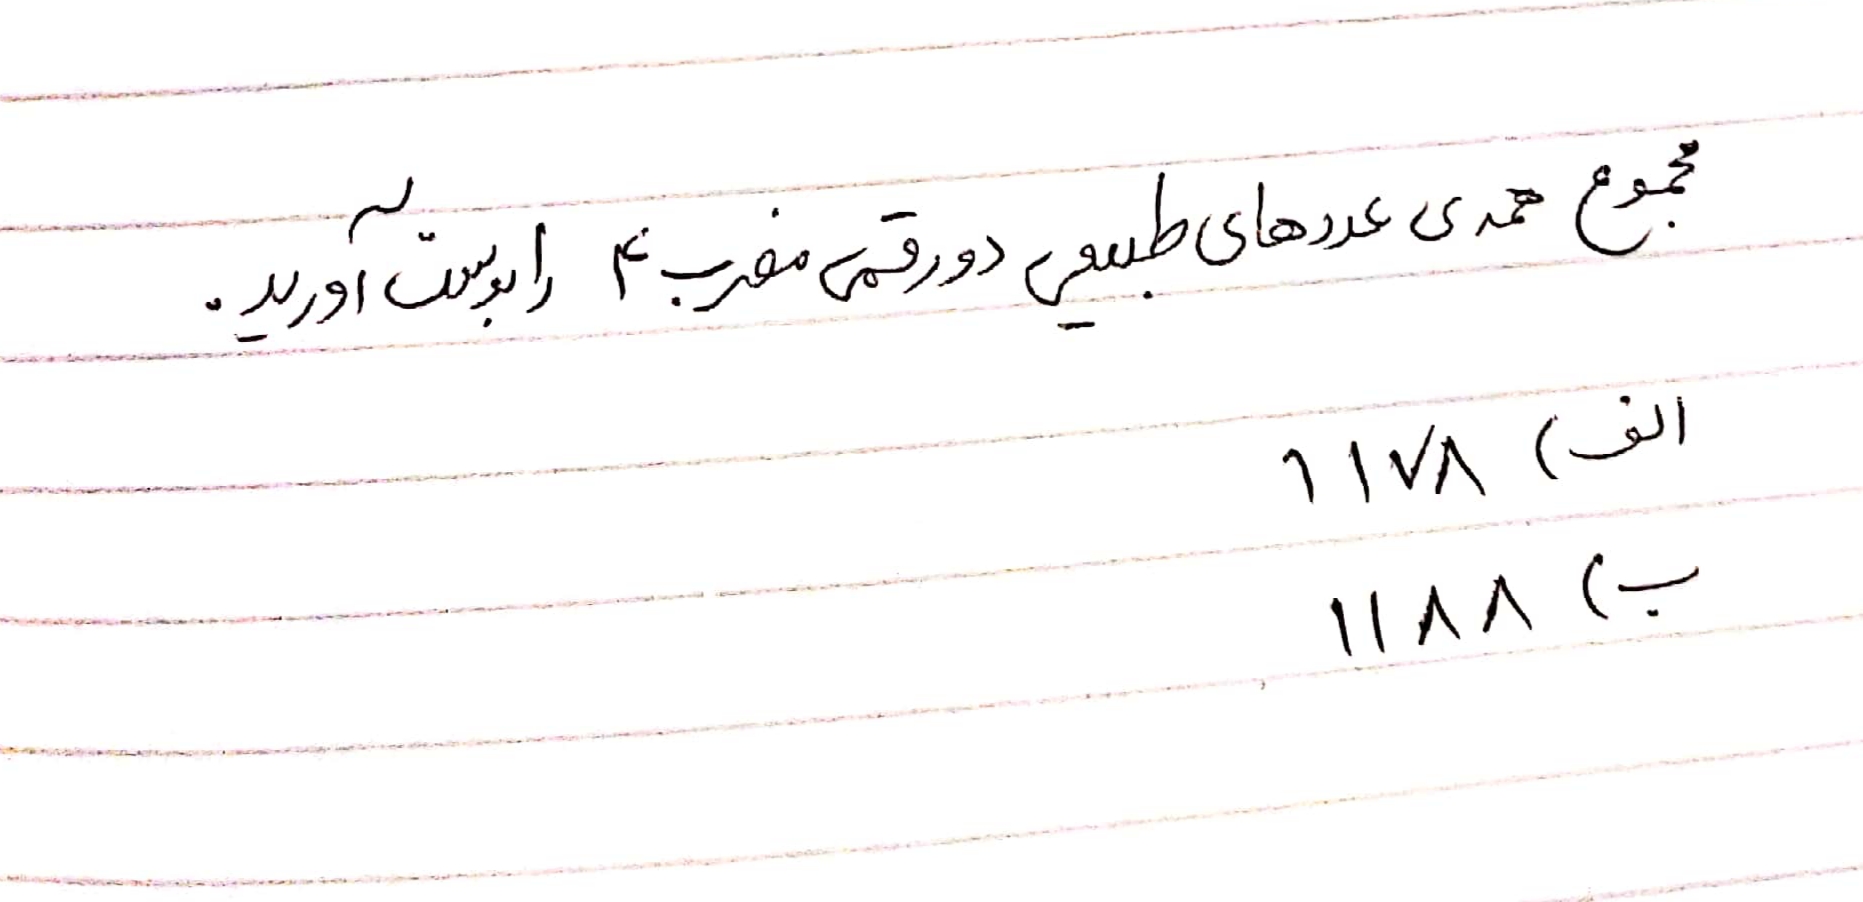 مجموع همه ی عددهای طبیعی دو رقمی مضرب ۴ را بدست آورید.
الف) ۱۱۷۸
ب) ۱۱۸۸